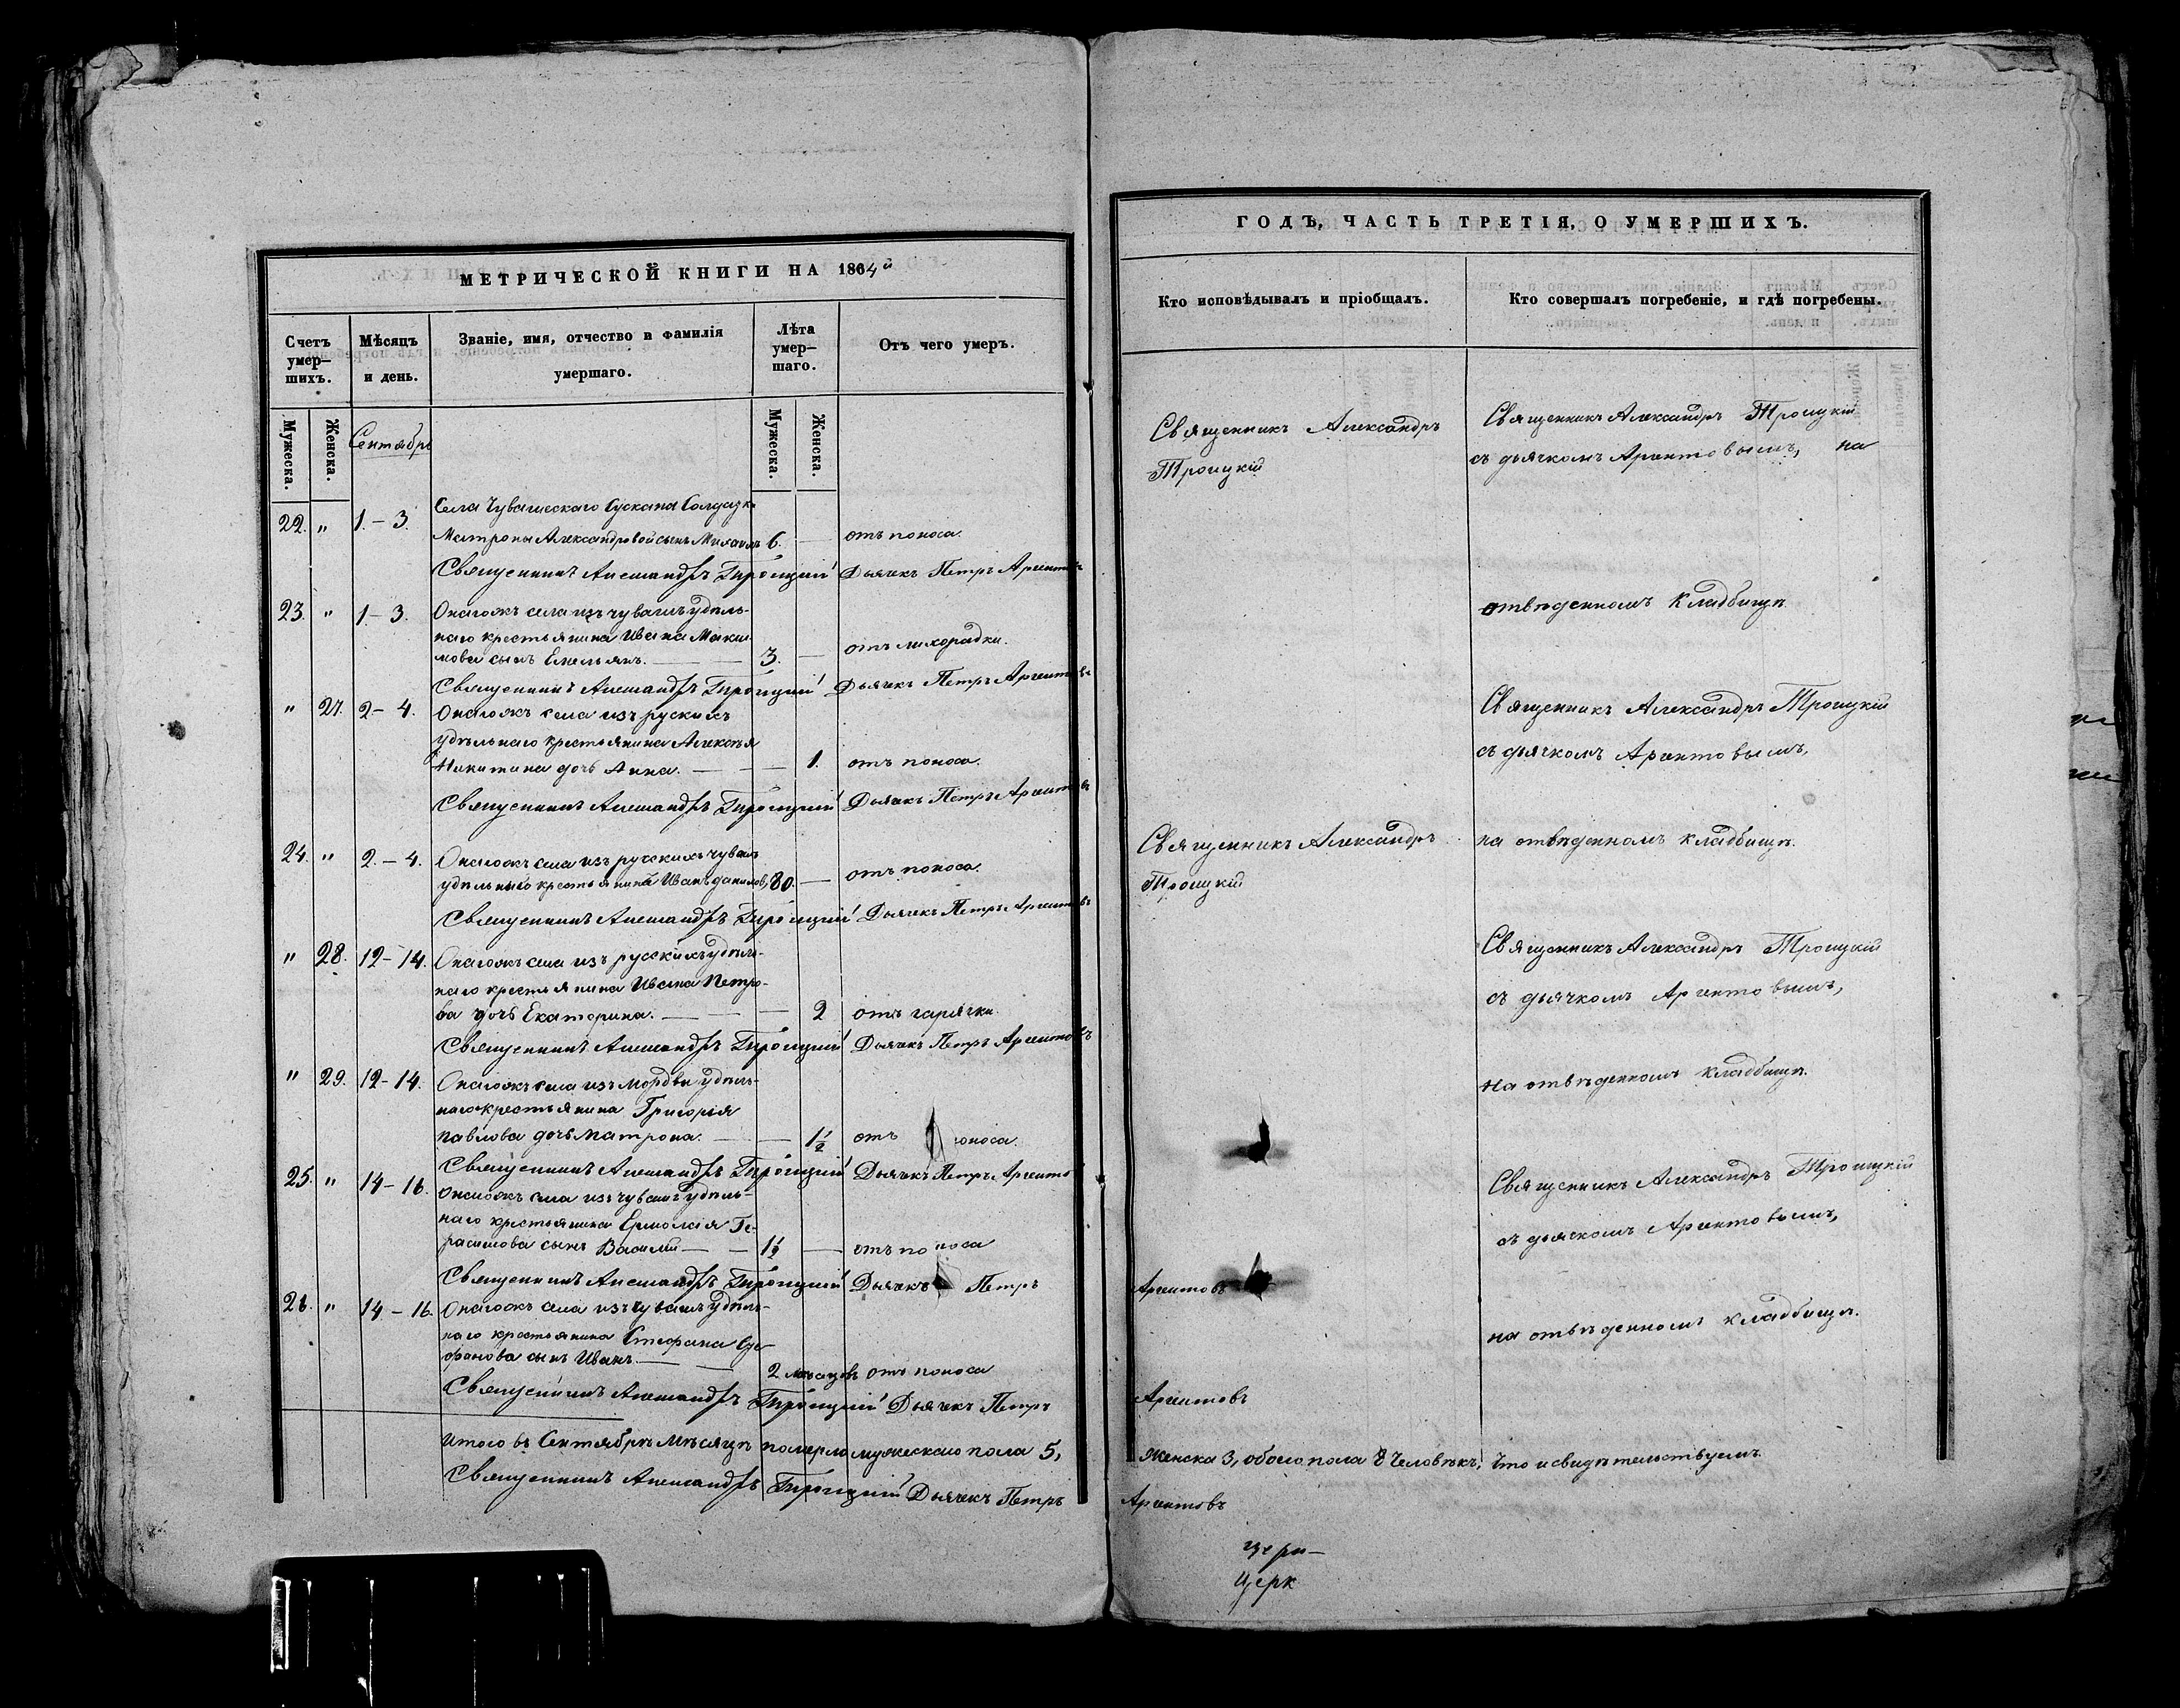 МЕТРИЧЕСКОЙ КНИГИ НА 1864й
Счетъ умер-шихъ.
Мѣсяцъ и день.
Званіе, имя, отчество и фамилія умершаго.
Лѣта умер-шаго.
Отъ чего умеръ.
Мужеска. Женска. Мужеска. Женска.
Сентябрь
Села Чувашескаго Сускана Солдатки
22. " 1.–3. Матроны Александровой сынъ Михаилъ 6. — отъ поноса.
Священникъ Александръ Троицкій Дьячекъ Петръ Аргентовъ
23. " 1–3. Онагожъ села изъ чувашъ удѣль-
наго крестьянина Ивана Макси-
мова сынъ Емельянъ. — 3. — отъ лихорадки.
Священникъ Александръ Троицкій Дьячекъ Петръ Аргентовъ
" 27. 2–4. Онагожъ села изъ рускихъ
удѣльнаго крестьянина Алексѣя
Никитина дочь Анна. — — 1. отъ поноса.
Священникъ Александръ Троицкій Дьячекъ Петръ Аргентовъ
24. " 2.–4. Онагожъ села изъ русскихъ чувашъ
удѣльный крестьянинъ Иванъ Даниловъ, 80. — отъ поноса.
Священникъ Александръ Троицкій Дьячекъ Петръ Аргентовъ
" 28. 12–14. Онагожъ села изъ русскихъ удѣль-
наго крестьянина Ивана Петро-
ва дочь Екатерина. — — 2 отъ гарячки.
Священникъ Александръ Троицкій Дьячекъ Петръ Аргентовъ
" 29. 12–14. Онагожъ села изъ Мордвы удѣль-
наго крестьянина Григорія
Павлова дочь Матрона. — — 1½ отъ поноса.
Священникъ Александръ Троицкій Дьячекъ Петръ Аргенто
25. " 14–16. Онагожъ села изъ чувашъ удѣль-
наго крестьянина Ермолая Ге-
расимова сынъ Василій — — 1½ — отъ поноса
Священникъ Александръ Троицкій Дьячекъ Петръ
26. " 14–16. Онагожъ села изъ чувашъ удѣль-
наго крестьянина Стефана
сынъ Иванъ. — — 2 мѣсяцовъ отъ поноса
Священникъ Александръ Троицкій Дьячекъ Петръ
Итого въ Сентябрѣ мѣсяцѣ померло мужескаго пола 5,
Священникъ Александръ Троицкій Дьячекъ Петръ
ГОДЪ, ЧАСТЬ ТРЕТІЯ, О УМЕРШИХЪ.
Кто исповѣдывалъ и пріобщалъ.
Кто совершалъ погребеніе, и гдѣ погребены.
Священникъ Александръ
Троицкій
Священникъ Александръ Троицкій
съ дьячкомъ Аргентовымъ, на
отвѣденномъ кладбищѣ.
Священникъ Александръ Троицкій
съ дьячкомъ Аргентовымъ,
Священникъ Александръ
Троицкій
на отвѣденномъ кладбищѣ.
Священникъ Александръ Троицкій
съ дьячкомъ Аргентовымъ,
на отвѣденномъ кладбищѣ.
Священникъ Александръ Троицкій
съ дьячкомъ Аргентовымъ,
Аргентовъ
на отвѣденномъ кладбищѣ.
Аргентовъ
Женска 3, обоего пола 8 Человѣкъ, Что и свидѣтельствуемъ.
Аргентовъ
Церк